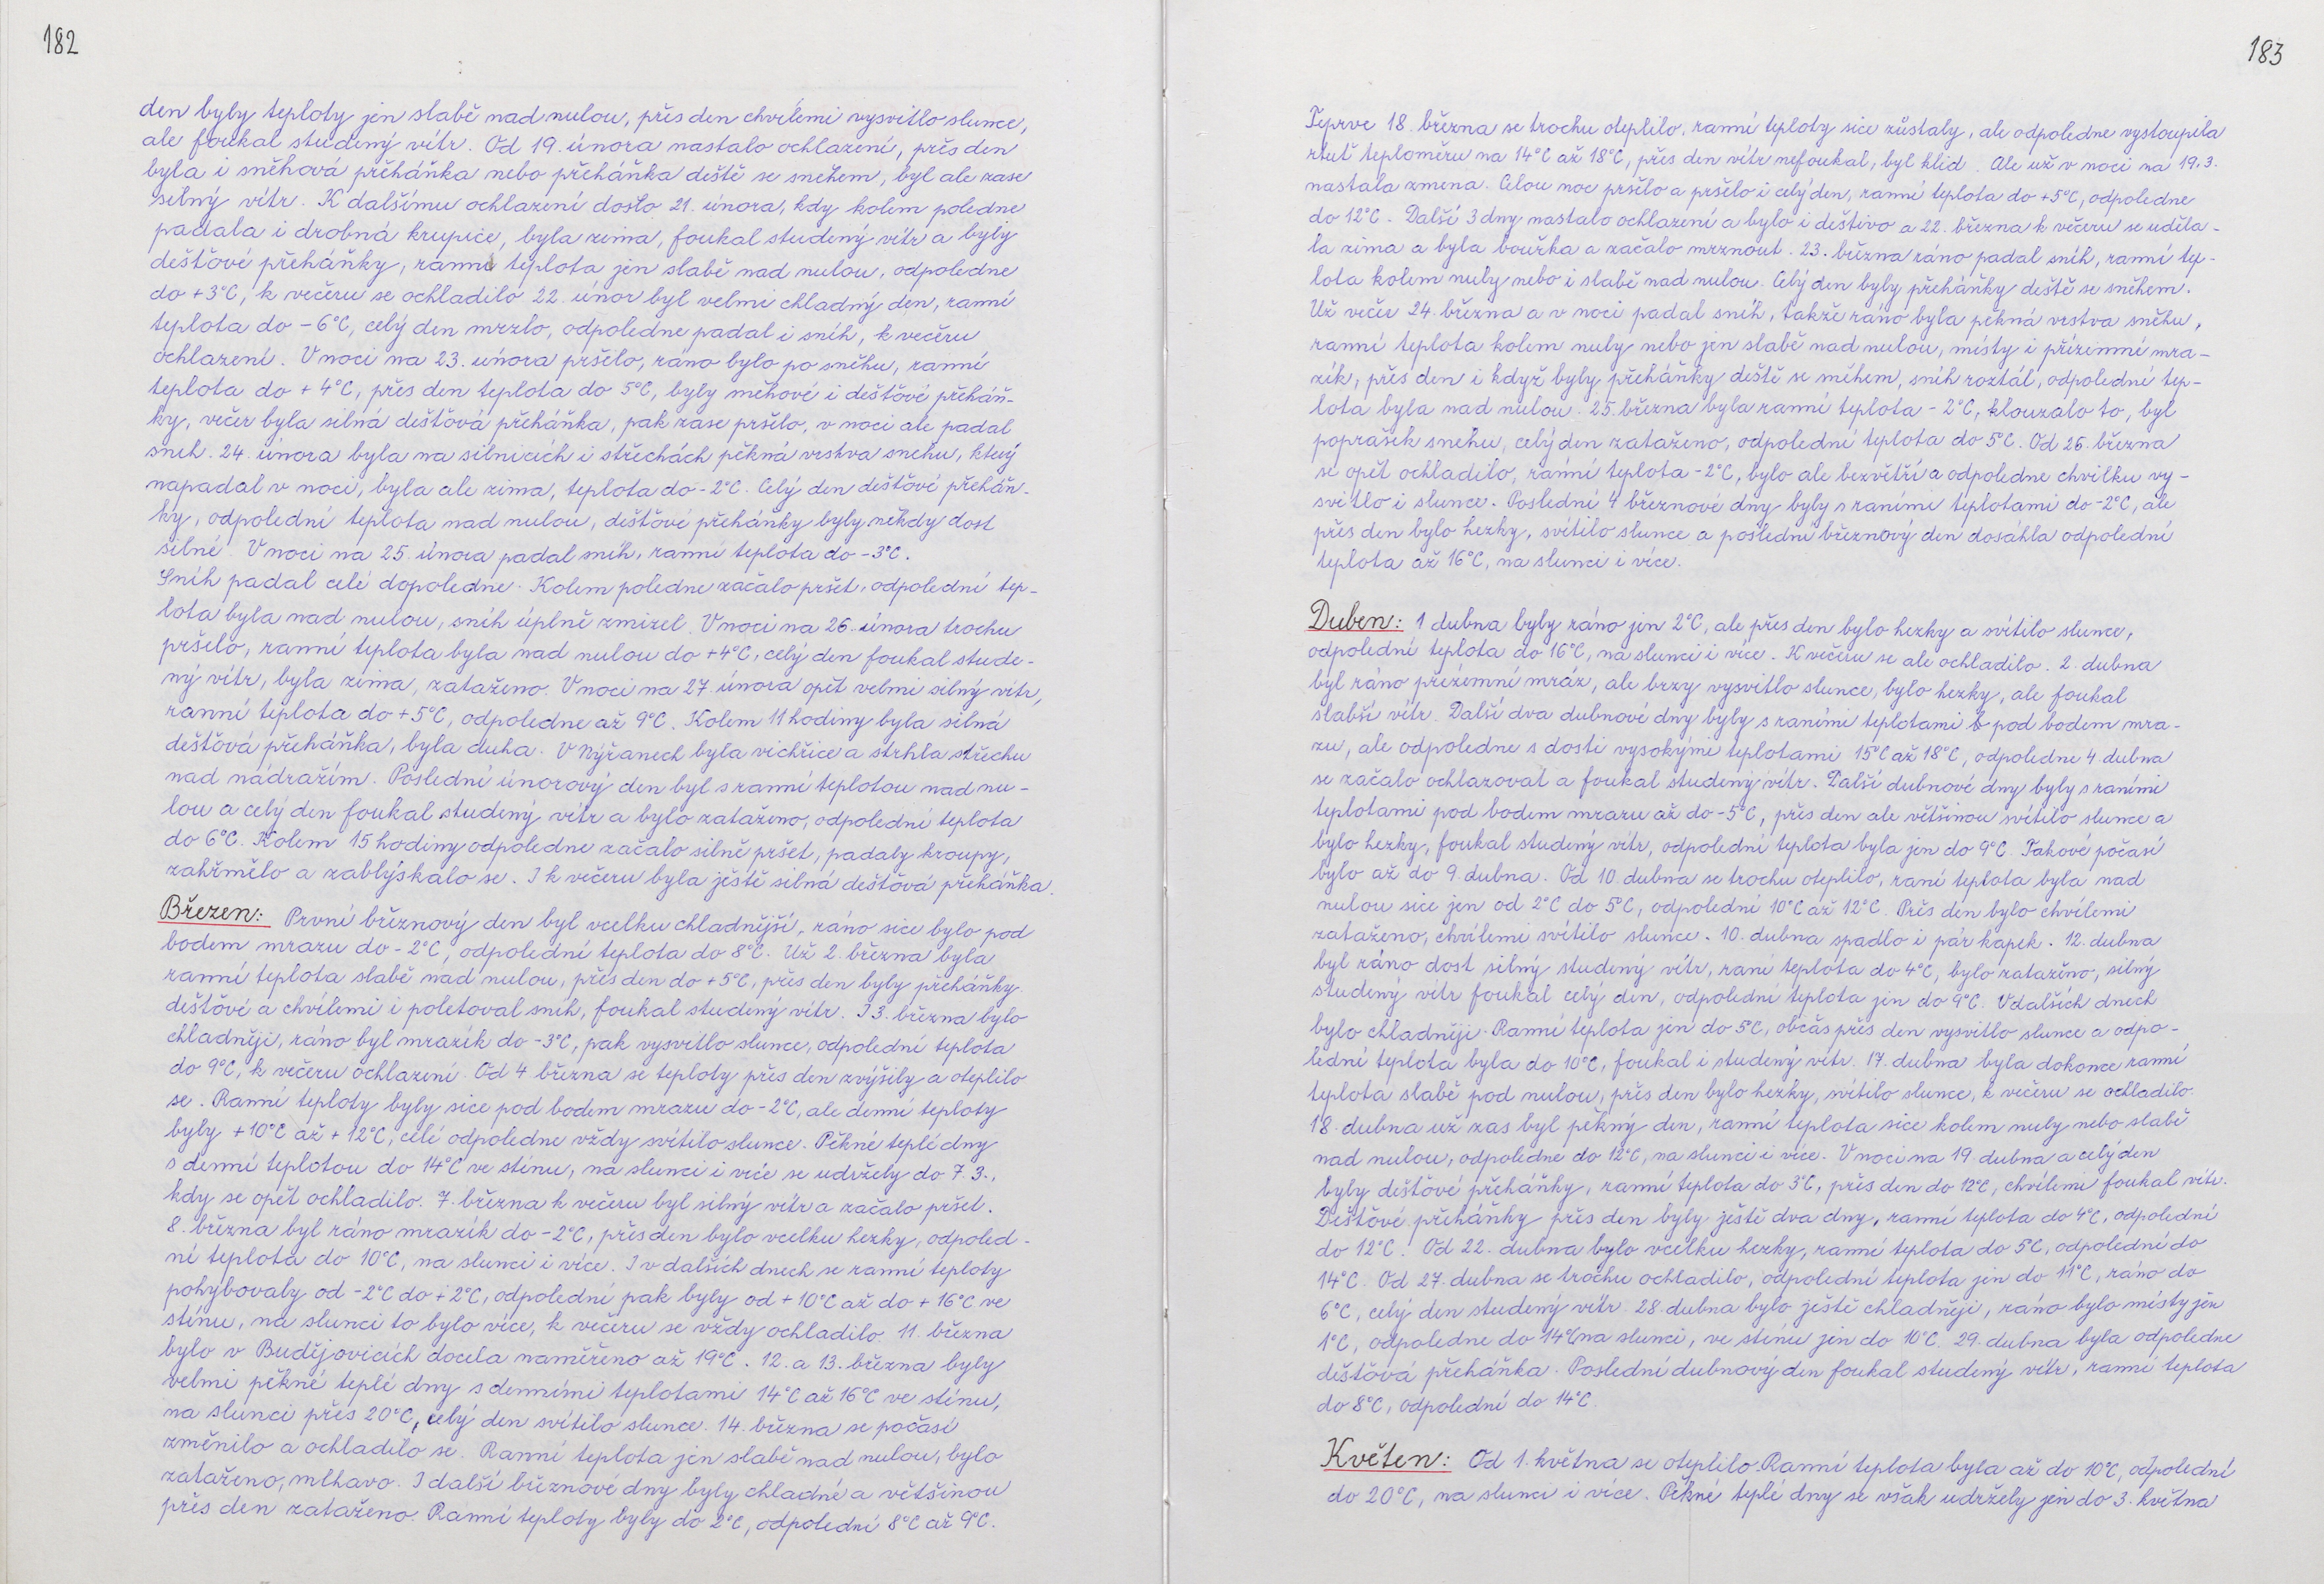 182
den byly teploty jen slabě nad nulou, přes den chvílemi vysvitlo slunce,
ale foukal studený vítr. Od 19. února nastalo ochlazení, přes den
byla i sněhová přeháňka nebo přeháňka deště se sněhem, byl ale zase
silný vítr. K dalšímu ochlazení došlo 21. února, kdy kolem poledne
padala i drobná krupice, byla zima, foukal studený vítr a byly
dešťové přeháňky, ranní teplota jen slabě nad nulou, odpoledne
do +3°C, k večeru se ochladilo 22. únor byl velmi chladný den, ranní
teplota do -6°C, celý den mrzlo, odpoledne padal i sníh, k večeru
ochlazení. V noci na 23. února pršelo, ráno bylo po sněhu, ranní
teplota do +4°C, přes den teplota do 5°C, byly sněhové i dešťové přeháň-
ky, večer byla silná dešťová přeháňka, pak zase pršelo, v noci ale padal
sníh. 24. února byla na silnicích i střechách pěkná vrstva sněhu, který
napadal v noci, byla ale zima, teplota do -2°C. Celý den dešťové přeháň-
ky, odpolední teplota nad nulou, dešťové přeháňky byly někdy dost
silné. V noci na 25. února padal sníh, ranní teplota do -3°C.
Sníh padal celé dopoledne. Kolem poledne začalo pršet, odpolední tep-
lota byla nad nulou, sníh úplně zmizel. V noci na 26. února trochu
pršelo, ranní teplota byla nad nulou do +4°C, celý den foukal stude-
ný vítr, byla zima, zataženo. V noci na 27. února opět velmi silný vítr,
ranní teplota do +5°C, odpoledne až 9°C. Kolem 11 hodiny byla silná
dešťová přeháňka, byla duha. V Nýřanech byla vichřice a strhla střechu
nad nádražím. Poslední únorový den byl s ranní teplotou nad nu-
lou a celý den foukal studený vítr a bylo zataženo, odpolední teplota
do 6°C. Kolem 15 hodiny odpoledne začalo silně pršet, padaly kroupy,
zahřmělo a zablýskalo se. I k večeru byla ještě silná dešťová přeháňka.
Březen: První březnový den byl vcelku chladnější, ráno sice bylo pod
bodem mrazu do -2°C, odpolední teplota do 8°C. Už 2. března byla
ranní teplota slabě nad nulou, přes den do +5°C, přes den byly přeháňky
dešťové a chvílemi i poletoval sníh, foukal studený vítr. I 3. března bylo
chladněji, ráno byl mrazík do -3°C, pak vysvitlo slunce, odpolední teplota
do 9°C, k večeru ochlazení. Od 4 března se teploty přes den zvýšily a oteplilo
se. Ranní teploty byly sice pod bodem mrazu do -2°C, ale denní teploty
byly +10°C až +12°C, celé odpoledne vždy svítilo slunce. Pěkné teplé dny
s denní teplotou do 14°C ve stínu, na slunci i více se udržely do 7.3.,
kdy se opět ochladilo. 7. března k večeru byl silný vítr a začalo pršet.
8. března byl ráno mrazík do -2°C, přes den bylo vcelku hezky, odpoled-
ní teplota do 10°C, na slunci i více. I v dalších dnech se ranní teploty
pohybovaly od -2°C do +2°C, odpolední pak byly od +10°C až do +16°C ve
stínu, na slunci to bylo více, k večeru se vždy ochladilo. 11. března
bylo v Budějovicích docela naměřeno až 19°C. 12. a 13. března byly
velmi pěkné teplé dny s denními teplotami 14°C až 16°C ve stínu,
na slunci přes 20°C, celý den svítilo slunce. 14. března se počasí
změnilo a ochladilo se. Ranní teplota jen slabě nad nulou, bylo
zataženo, mlhavo. I další březnové dny byly chladné a většinou
přes den zataženo. Ranní teploty byly do 2°C, odpolední 8°C až 9°C.
183
Teprve 18. března se trochu oteplilo, ranní teploty sice zůstaly, ale odpoledne vystoupila
rtuť teploměru na 14°C až 18°C, přes den vítr nefoukal, byl klid. Ale už v noci na 19.3.
nastala změna. Celou noc pršelo a pršelo i celý den, ranní teplota do +5°C, odpoledne
do 12°C. Další 3 dny nastalo ochlazení a bylo i deštivo a 22. března k večeru se uděla-
la zima a byla bouřka a začalo mrznout. 23. března ráno padal sníh, ranní tep-
lota kolem nuly nebo i slabě nad nulou. Celý den byly přeháňky deště se sněhem.
Už večer 24. března a v noci padal sníh, takže ráno byla pěkná vrstva sněhu,
ranní teplota kolem nuly nebo jen slabě nad nulou, místy i přízemní mra-
zík, přes den i když byly přeháňky deště se sněhem, sníh roztál, odpolední tep-
lota byla nad nulou. 25. března byla ranní teplota -2°C, klouzalo to, byl
poprašek sněhu, celý den zataženo, odpolední teplota do 5°C. Od 26. března
se opět ochladilo, ranní teplota -2°C, bylo ale bezvětří a odpoledne chvilku vy-
svitlo i slunce. Poslední 4 březnové dny byly s raními teplotami do -2°C, ale
přes den bylo hezky, svítilo slunce a poslední březnový den dosáhla odpolední
teplota až 16°C, na slunci i více.
Duben: 1 dubna byly ráno jen 2°C, ale přes den bylo hezky a svítilo slunce,
odpolední teplota do 16°C, na slunci i více. K večeru se ale ochladilo. 2. dubna
byl ráno přízemní mráz, ale brzy vysvitlo slunce, bylo hezky, ale foukal
slabší vítr. Další dva dubnové dny byly s raními teplotami pod bodem mra-
zu, ale odpoledne s dosti vysokými teplotami 15°C až 18°C, odpoledne 4 dubna
se začalo ochlazovat a foukal studený vítr. Další dubnové dny byly s raními
teplotami pod bodem mrazu až do -5°C, přes den ale většinou svítilo slunce a
bylo hezky, foukal studený vítr, odpolední teplota byla jen do 9°C. Takové počasí
bylo až do 9. dubna. Od 10. dubna se trochu oteplilo, raní teplota byla nad
nulou sice jen od 2°C do 5°C, odpolední 10°C až 12°C. Přes den bylo chvílemi
zataženo, chvílemi svítilo slunce. 10. dubna spadlo i pár kapek. 12. dubna
byl ráno dost silný studený vítr, raní teplota do 4°C, bylo zataženo, silný
studený vítr foukal celý den, odpolední teplota jen do 9°C. V dalších dnech
bylo chladněji. Ranní teplota jen do 5°C, občas přes den vysvitlo slunce a odpo-
lední teplota byla do 10°C, foukal i studený vítr. 17. dubna byla dokonce ranní
teplota slabě pod nulou, přes den bylo hezky, svítilo slunce, k večeru se ochladilo.
18. dubna už zas byl pěkný den, ranní teplota sice kolem nuly nebo slabě
nad nulou, odpoledne do 12°C, na slunci i více. V noci na 19. dubna a celý den
byly dešťové přeháňky, ranní teplota do 3°C, přes den do 12°C, chvílemi foukal vítr.
Dešťové přeháňky přes den byly ještě dva dny, ranní teplota do 4°C, odpolední
do 12°C. Od 22. dubna bylo vcelku hezky, ranní teplota do 5°C, odpolední do
14°C. Od 27. dubna se trochu ochladilo, odpolední teplota jen do 11°C, ráno do
6°C, celý den studený vítr. 28. dubna bylo ještě chladněji, ráno bylo místy jen
1°C, odpoledne do 14°C na slunci, ve stínu jen do 10°C. 29. dubna byla odpoledne
dešťová přeháňka. Poslední dubnový den foukal studený vítr, ranní teplota
do 8°C, odpolední do 14°C.
Květen: Od 1. května se oteplilo. Ranní teplota byla až do 10°C, odpolední
do 20°C, na slunci i více. Pěkné teplé dny se však udržely jen do 3. května